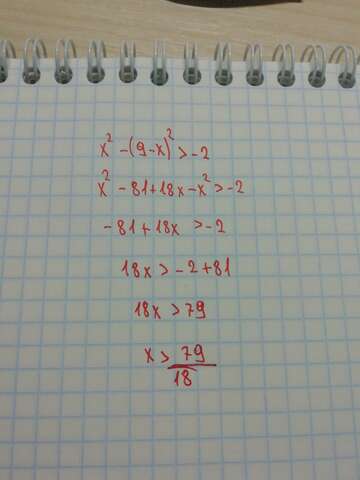 x² - (9 - x)² > -2
x² - 81 + 18x - x² > -2
- 81 + 18x > -2
18x > -2 + 81
18x > 79
x > 79/18